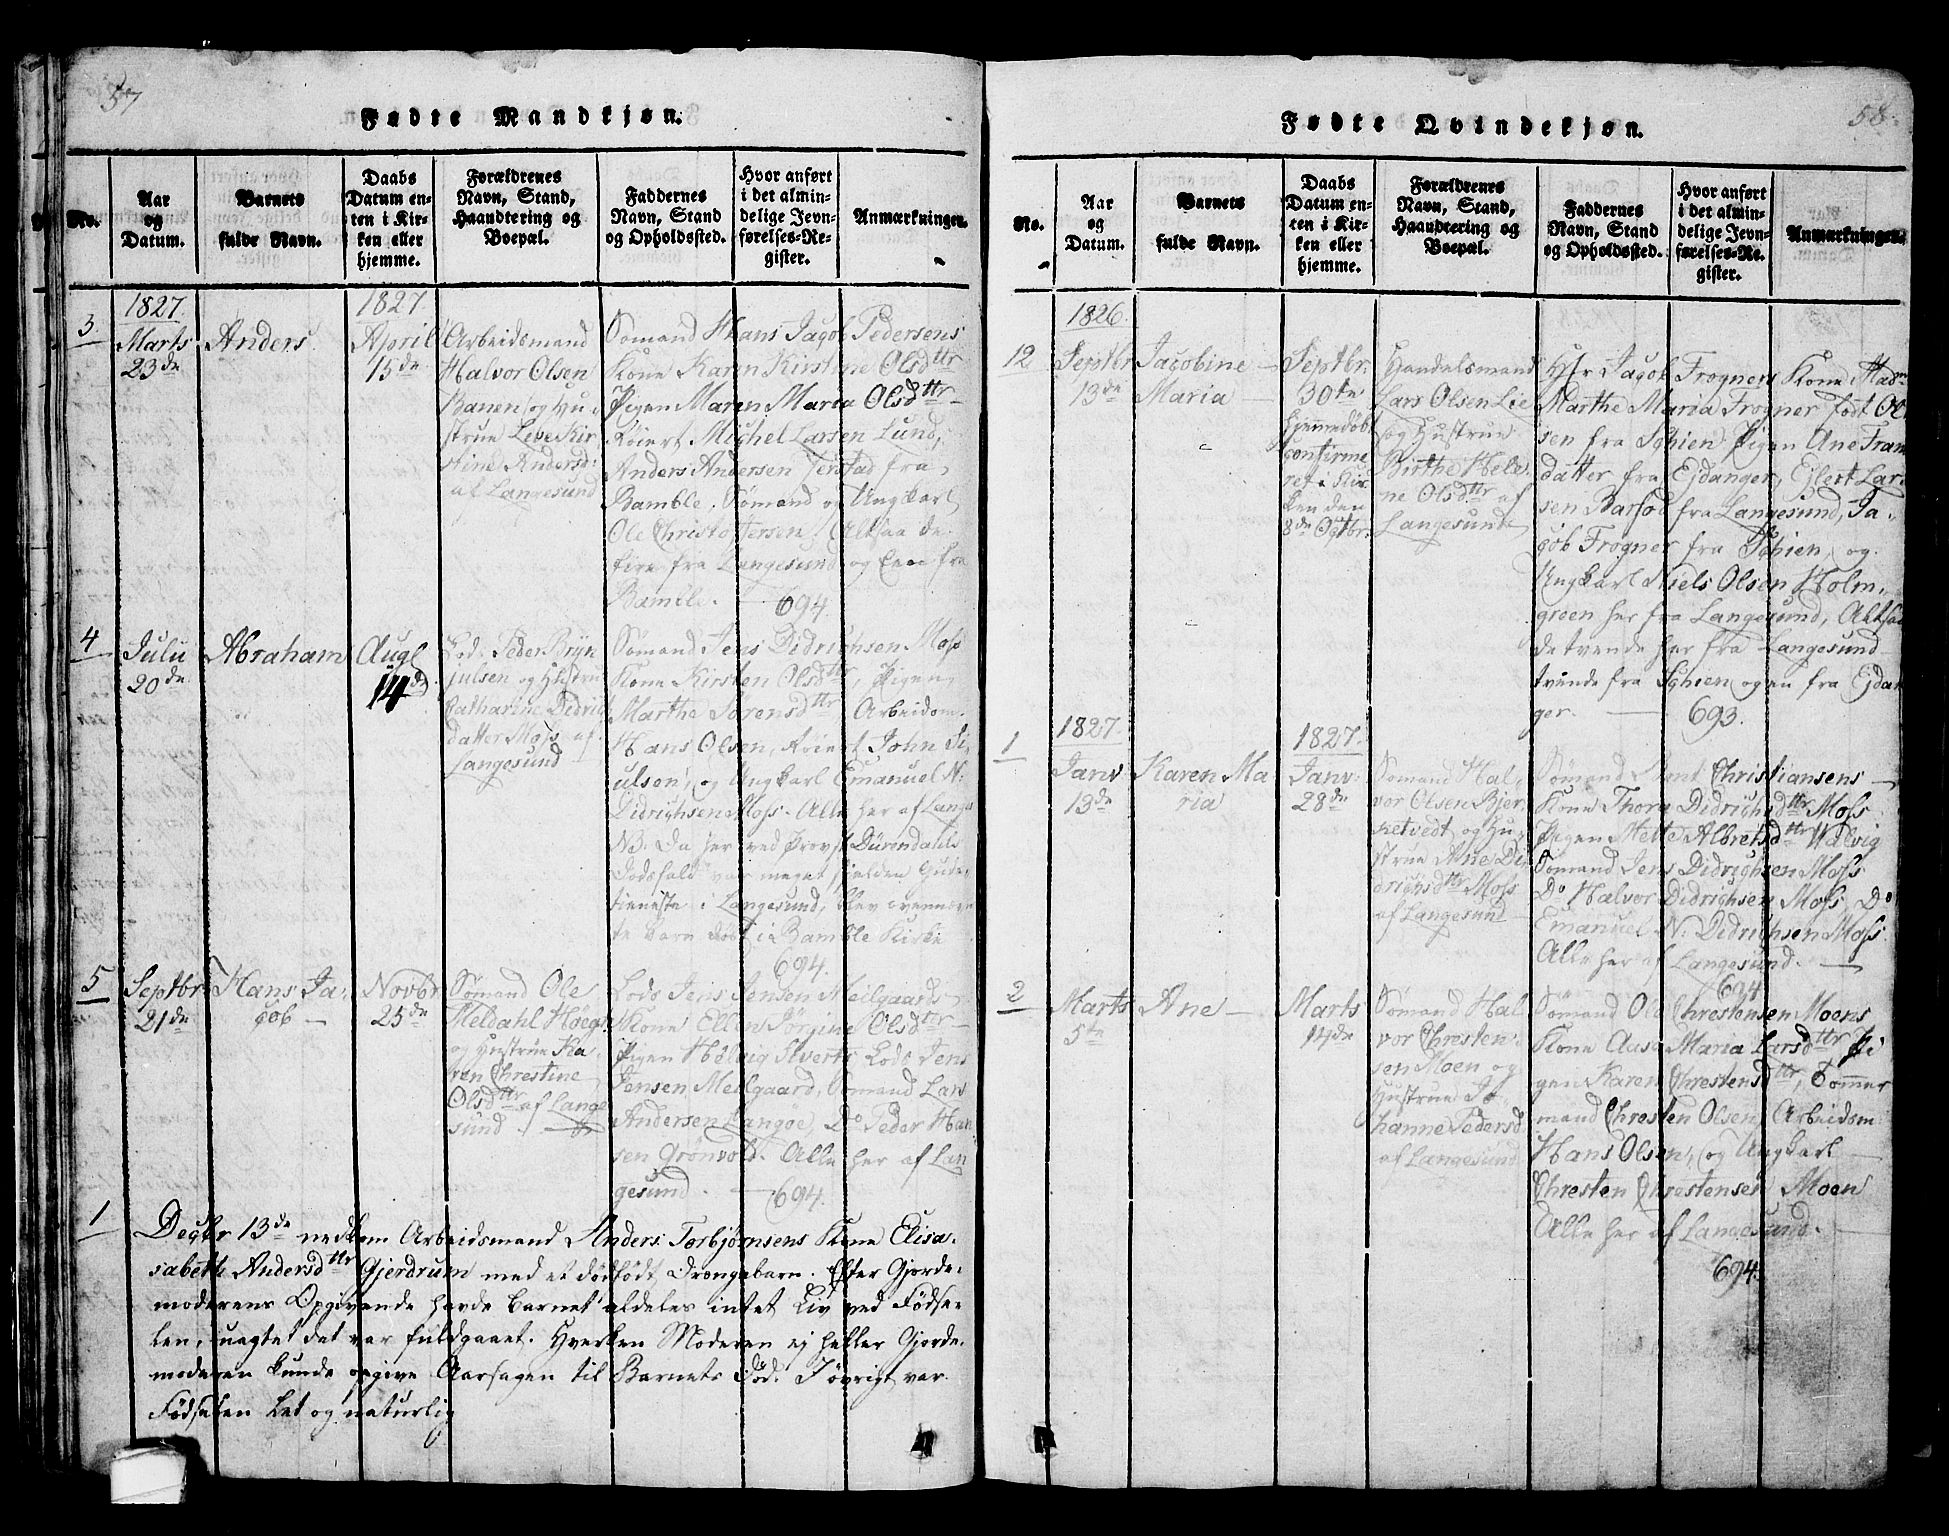 57
Fødte Mandkjøn.
No.
Aar
og
Datum.
Barnets
fulde Navn.
Daabs
Datum en-
ten i Kir-
ken eller
hjemme.
Forældrenes
Navn, Stand,
Haandtering og
Boepæl.
Faddernes
Navn, Stand
og Opholdssted.
Hvor anført
i det almin-
delige Jevn-
førelses-Re-
gister.
Anmærkninger.
3.
1827.
Marts
23de
Anders
1827.
April
15de
Arbeidsmand
Halvor Olsen
Banen og Hu-
strue Leve Kir
stine Andersd:
af Langesund
Sømand Hans Jacob Pedersens
Kone Karen Kirstine Olsdttr
Pigen Maren Maria Olsdttr
Røiert Michel Larsen Lund,
Anders Andersen Jerstad fra
Bamble. Sømand og Ungkarl
Ole Christophersen / Altsaa de
fire fra Langesund og Een fra
Bamble. — 694
4
Julii
20de
Abraham
Augt
14de
Lods Peder Bryn
julsen og Hustru
Catharine Didrik
datter Moss af
Langesund
Sømand Jens Didrichsen Moss
Kone Kirsten Olsdttr, Pigen
Marthe Sørensdttr, Arbeidsm.
Hans Olsen, Røiert John Si-
ulsen, og Ungkarl Emanuel N:
Didrichsen Moss. Alle her af Lange
NB. Da her ved Provst Dürendahls
Dødsfald var meget sjelden Gude-
tieneste i Langesund, blev ovennævn
te Barn døbt i Bamble Kirke
694.
5
Septbr
21de
Hans Ja-
cob —
Novbr
25de
Sømand Ole
Meldahl Høegh
og Hustrue Ka-
ren Chrestine
Olsdttr af Lange
sund. —
Lods Jens Jensen Meilgaards
Kone Ellen Jørgine Olsdttr
Pigen Helvig Siverts Lods Jens
Jensen Meilgaard, Sømand Lars
Andersen Langøe, Do Peder Han
sen Grønvold. Alle her af Lan
gesund. — 694.
1
Decbr 13de nedkom Arbeidsmand Anders Torbjørnsens Kone Elisa-
sabeth Andersdttr Gjerdrum med et dødfødt Drengebarn. Efter Gjorde-
moderens Opgivende havde Barnet aldeles intet Liv ved Fødse-
len, uagtet det var fuldgaaet. Hverken Moderen ej heller Gjorde-
moderen kunde opgive Aarsagen til Barnets Død. I øvrigt var
Fødselen let og naturlig
58.
Fødte Qvindekjøn.
No.
Aar
og
Datum.
Barnets
fulde Navn.
Daabs
Datum en-
ten i Kir-
ken eller
hjemme.
Forældrenes
Navn, Stand,
Haandtering og
Boepæl.
Faddernes
Navn, Stand
og Opholdssted.
Hvor anført
i det almin-
delige Jevn-
førelses-Re-
gister.
Anmærkninger.
12
1826.
Septbr
13de
Jacobine —
Maria —
Septbr.
30te
hjemmedøbt
confirme
ret i Kir-
ken den
8de Octbr.
Handelsmand
Lars Olsen Lie
og Hustrue
Birthe Hele
ne Olsdttr af
Langesund
Hr Jacob Frogners Kone Madm
Marthe Maria Frogner født Ol
sen fra Schien Pigen Ane Fran
datter fra Ejdanger, Ejlert Lar
sen Barfod fra Langesund, Ja-
cob Frogner fra Schien, og
Ungkarl Niels Olsen Holm-
green her fra Langesund, Altsaa
de tvende her fra Langesund
tvende fra Schien og en fra Ejdan
ger. — 693.
1
1827.
Janv:
13de
Karen Ma
ria
1827.
Janv:
28de
Sømand Hal-
vor Olsen Bjer-
ketvedt og Hu-
strue Ane Di
drichsdttr Moss
af Langesund
Sømand Christiansens
Kone Thora Didrichsdttr Moss
Pigen Mette Albretsdttr Walvig
Sømand Jens Didrichsen Moss
Do Halvor Didrichsen Moss, Do
Emanuel N: Didrichsen Moss.
Alle her af Langesund. —
694
2
Marts
5te
Ane —
Marts
14de
Sømand Hal
vor Chresten-
sen Moen og
Hustrue Jo-
hanne Pedersd
af Langesund
Sømand Ole Chrestensen Moens
Kone Ausa Maria Larsdttr Pi
gen Karen Chrestensdttr, Tømmer
mand Chresten Olsen, Arbeidsm:
Hans Olsen, og Ungkarl —
Chresten Chrestensen Moen
Alle her af Langesund. —
694.